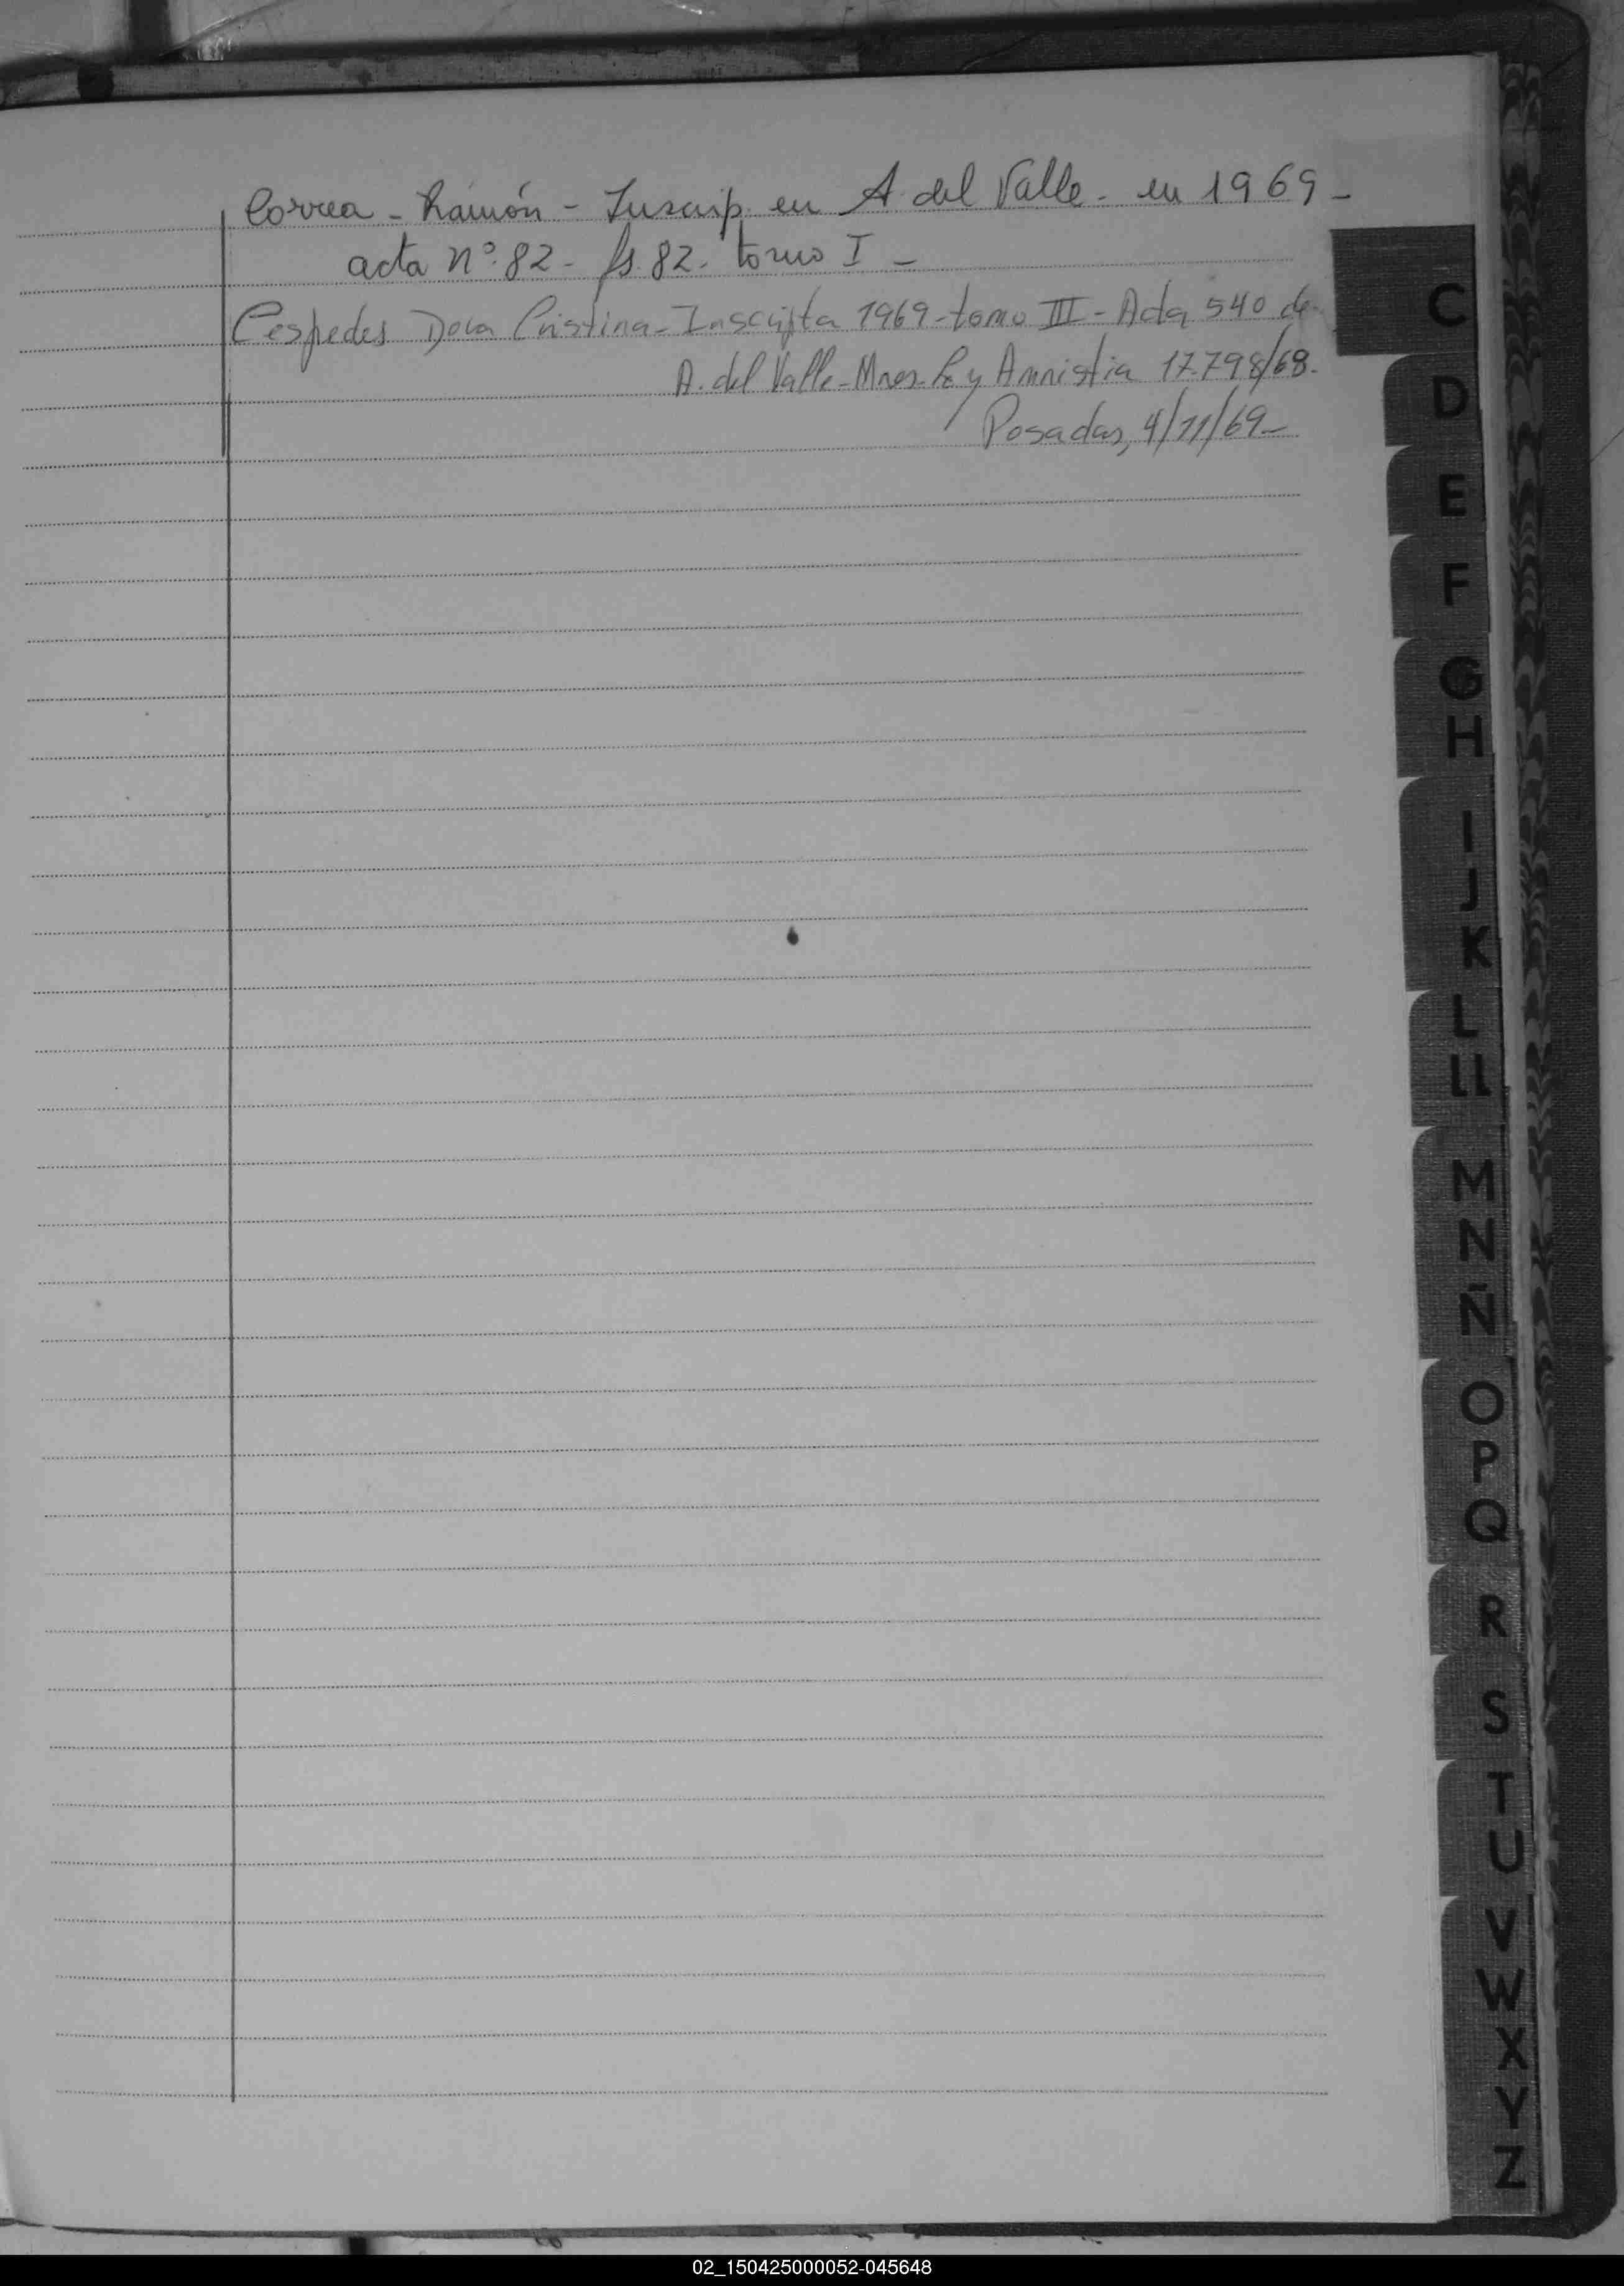 Correa - Ramón - Inscrip. en A. del Valle - en 1969 -
acta nº 82 - fs. 82 - tomo I -
Cespedes Dora Cristina - Inscripta 1969 - tomo III - Acta 540 de
A. del Valle - Mnes - Ley Amnistia 17.798/68.
Posadas, 4/11/69 -
C
D
E
F
G
H
I
J
K
L
LL
M
N
Ñ
O
P
Q
R
S
T
U
V
W
X
Y
Z
02_150425000052-045648